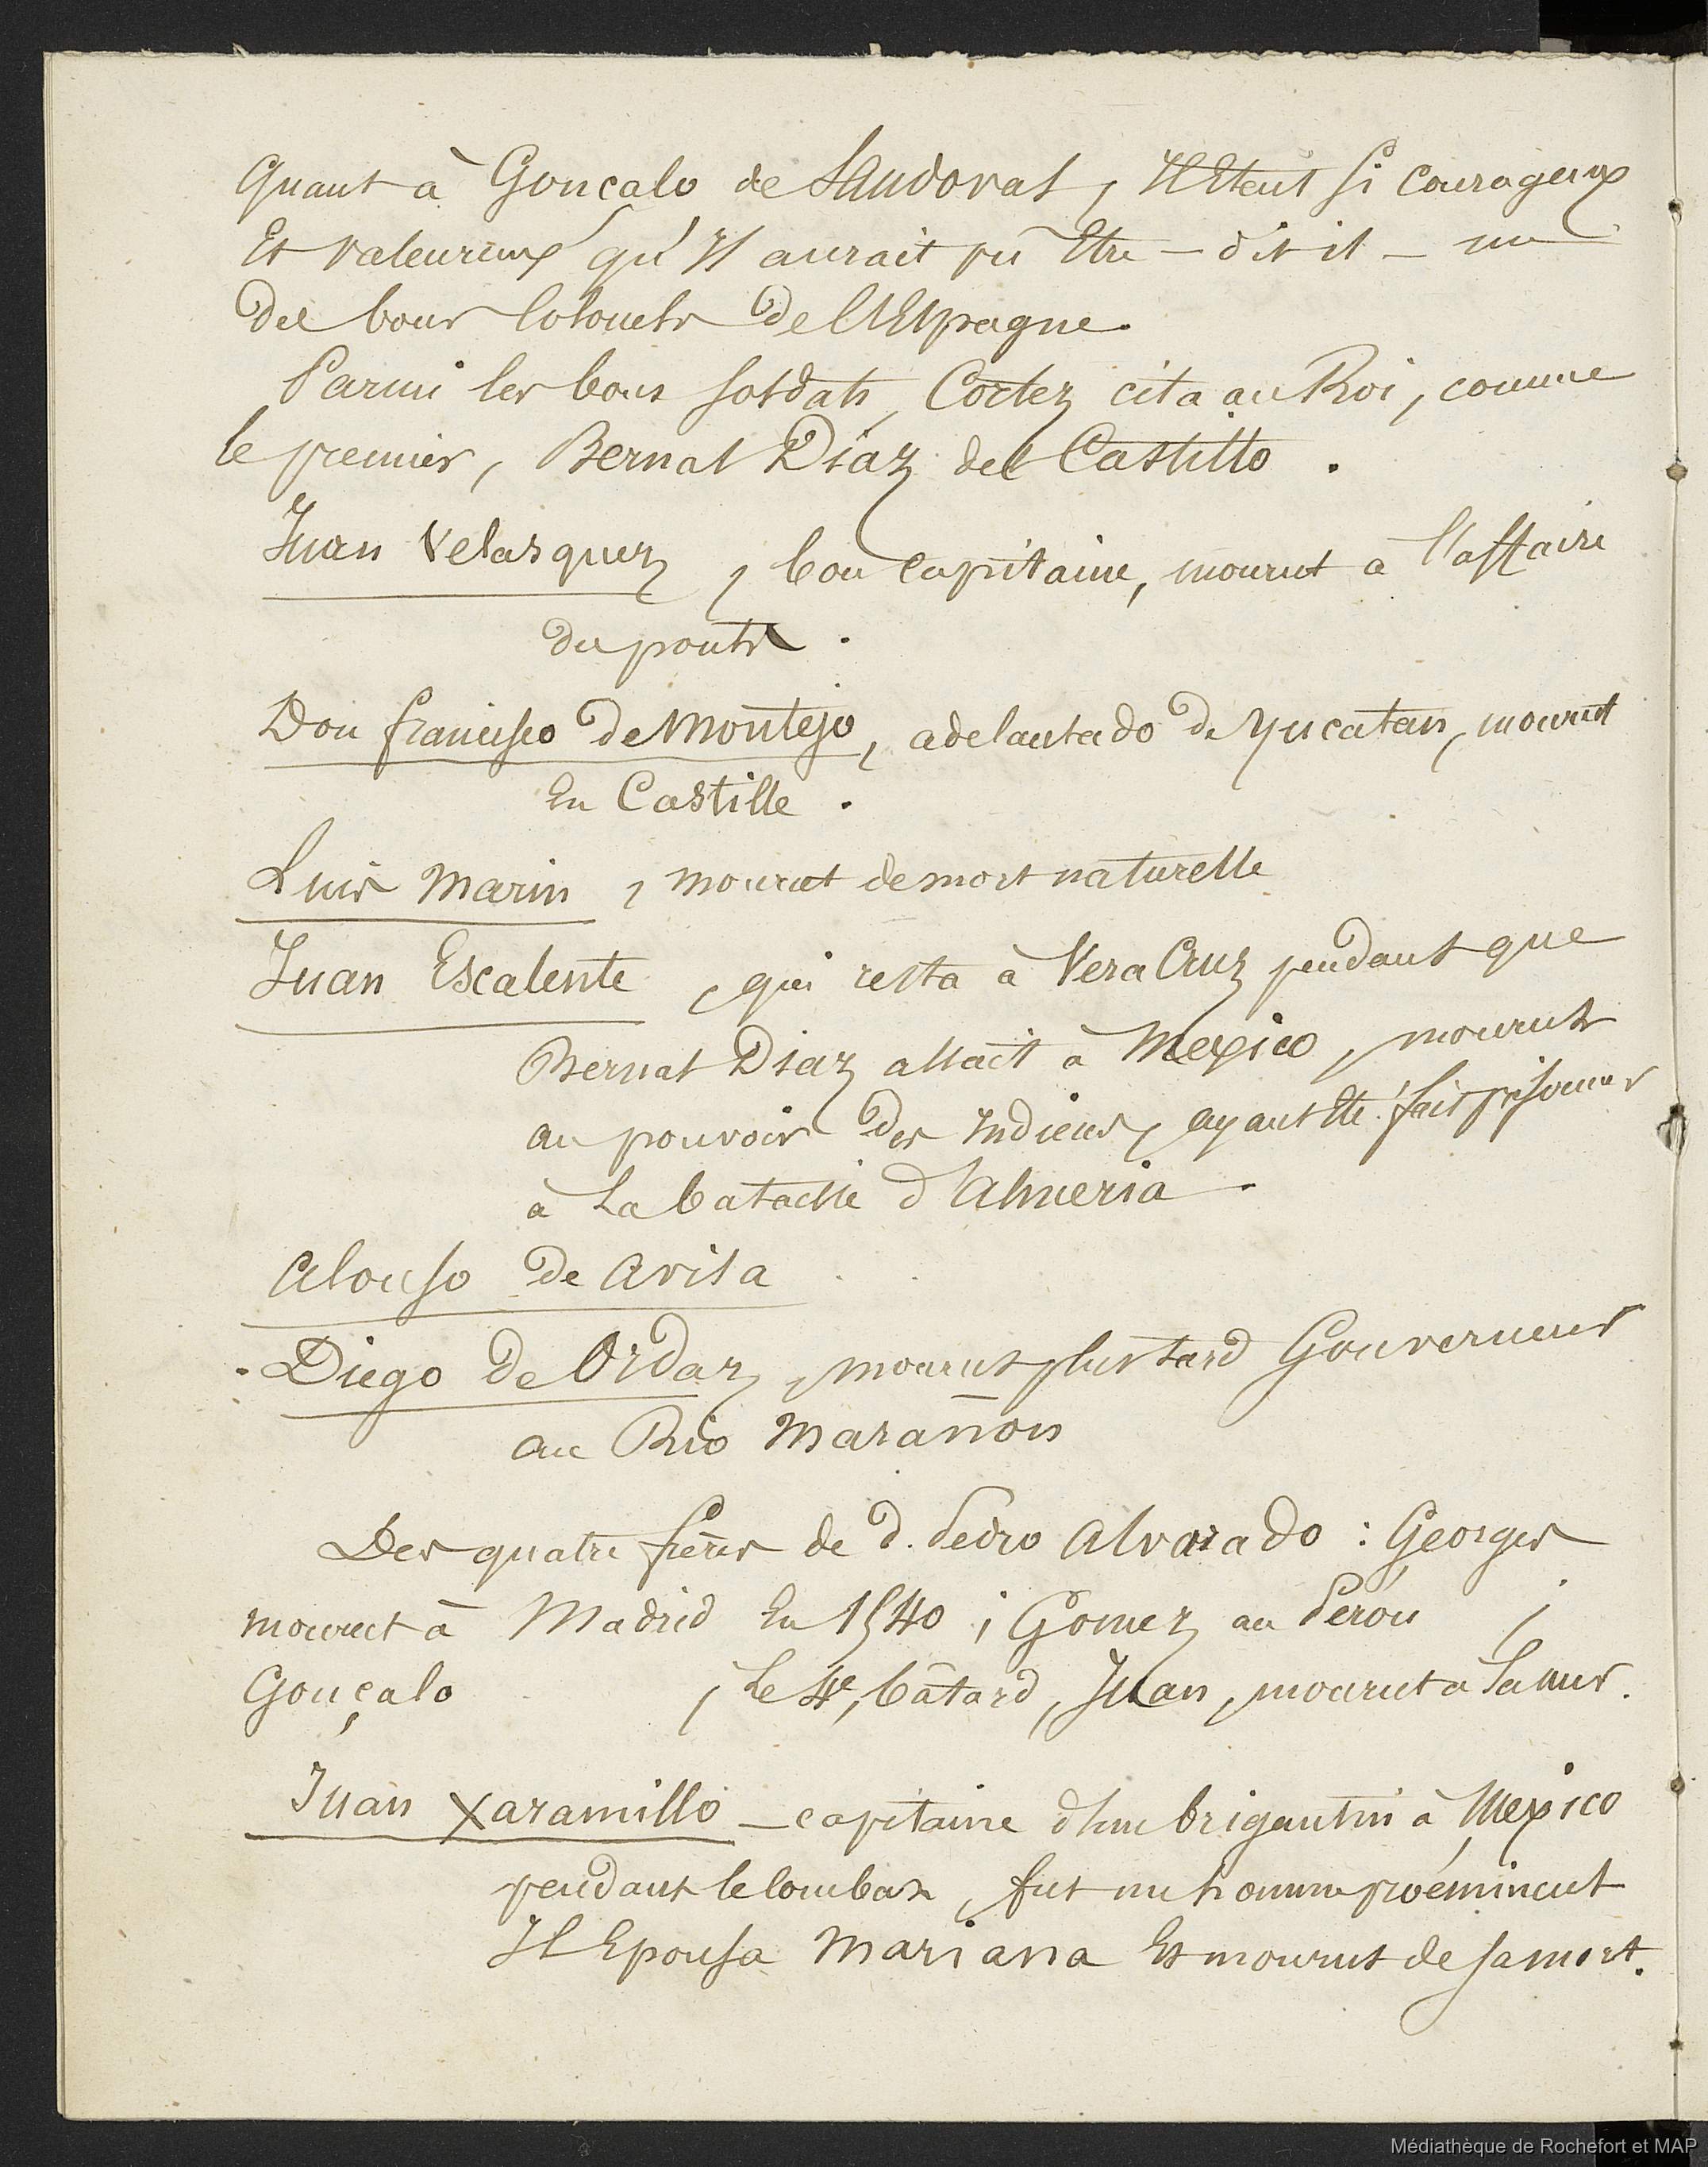 Quant à Goncalo de Sandoval, Il Etait si courageux
Et valeureux qu'il aurait pû Etre – dit il – un
des bons colonels de l'Espagne.
Parmi les bons soldats, Cortez cita au Roi, comme
le premier, Bernal Diaz del Castillo.
Juan Velasquez, bon capitaine, mourut à l'affaire
du ponts.
Don francisco de Montejo, adelantado de Yucatan, mourut
En Castille.
Luis Marin, mourut de mort naturelle
Juan Escalente, qui resta à Vera Cruz pendant que
Bernal Diaz allait à Mexico, mourut
au pouvoir des Indiens, ayant Eté fait prisonnier
à la bataille d'Almeria.
Alonso de Avila.
. Diego de Ordaz, mourut plus tard Gouverneur
au Rio Marañon
Des quatre frères de D. Pedro Alvarado : Georges
mourut à Madrid En 1540 ; Gomez au Pérou ;
Gonçalo , Le 4e, bâtard, Juan, mourut a la mer.
Juan Xaramillo – capitaine d'un brigantin à Mexico
pendant le combat, fut un homme proéminent
Il Epousa Mariana Et mourut de sa mort.
Médiathèque de Rochefort et MAP